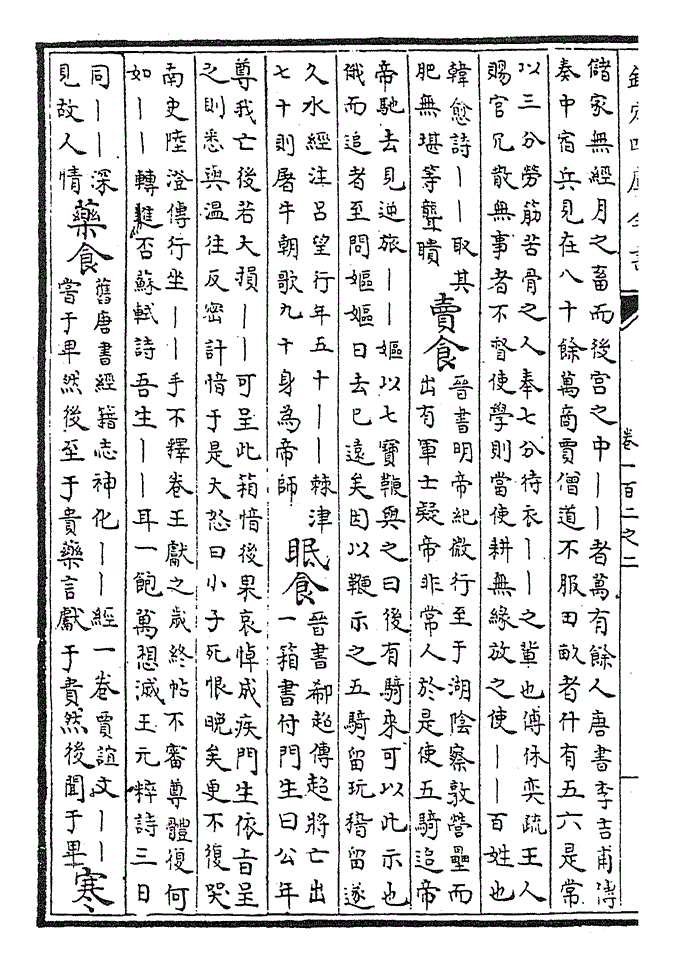 欽定四庫全書
卷一百二之二
儲家無經月之畜而後宮之中——者萬有餘人唐書李吉甫傳
秦中宿兵見在八十餘萬商賈僧道不服田畝者什有五六是常
以三分勞筋苦骨之人奉七分待衣——之輩也傅休奕疏王人
賜官冗散無事者不督使學則當使耕無緣放之使——百姓也
韓愈詩——取其
肥無堪等聾聵
賣食
晉書明帝紀微行至于湖陰察敦營壘而
出有軍士疑帝非常人於是使五騎追帝
帝馳去見逆旅——嫗以七寶鞭與之曰後有騎來可以此示也
俄而追者至問嫗嫗曰去已遠矣因以鞭示之五騎留玩稽留遂
久水經注呂望行年五十——棘津
七十則屠牛朝歌九十身為帝師
眠食
晉書郗超傳超將亡出
一箱書付門生曰公年
尊我亡後若大損——可呈此箱愔後果哀悼成疾門生依旨呈
之則悉與溫往反密計愔于是大怒曰小子死恨晚矣更不復哭
南史陸澄傳行坐——手不釋卷王獻之歲終帖不審尊體復何
如——轉進否蘇軾詩吾生——耳一飽萬想滅王元粹詩三日
同——深
見故人情
藥食
舊唐書經籍志神化——經一卷賈誼文——
嘗于卑然後至于貴藥言獻于貴然後聞于卑
寒